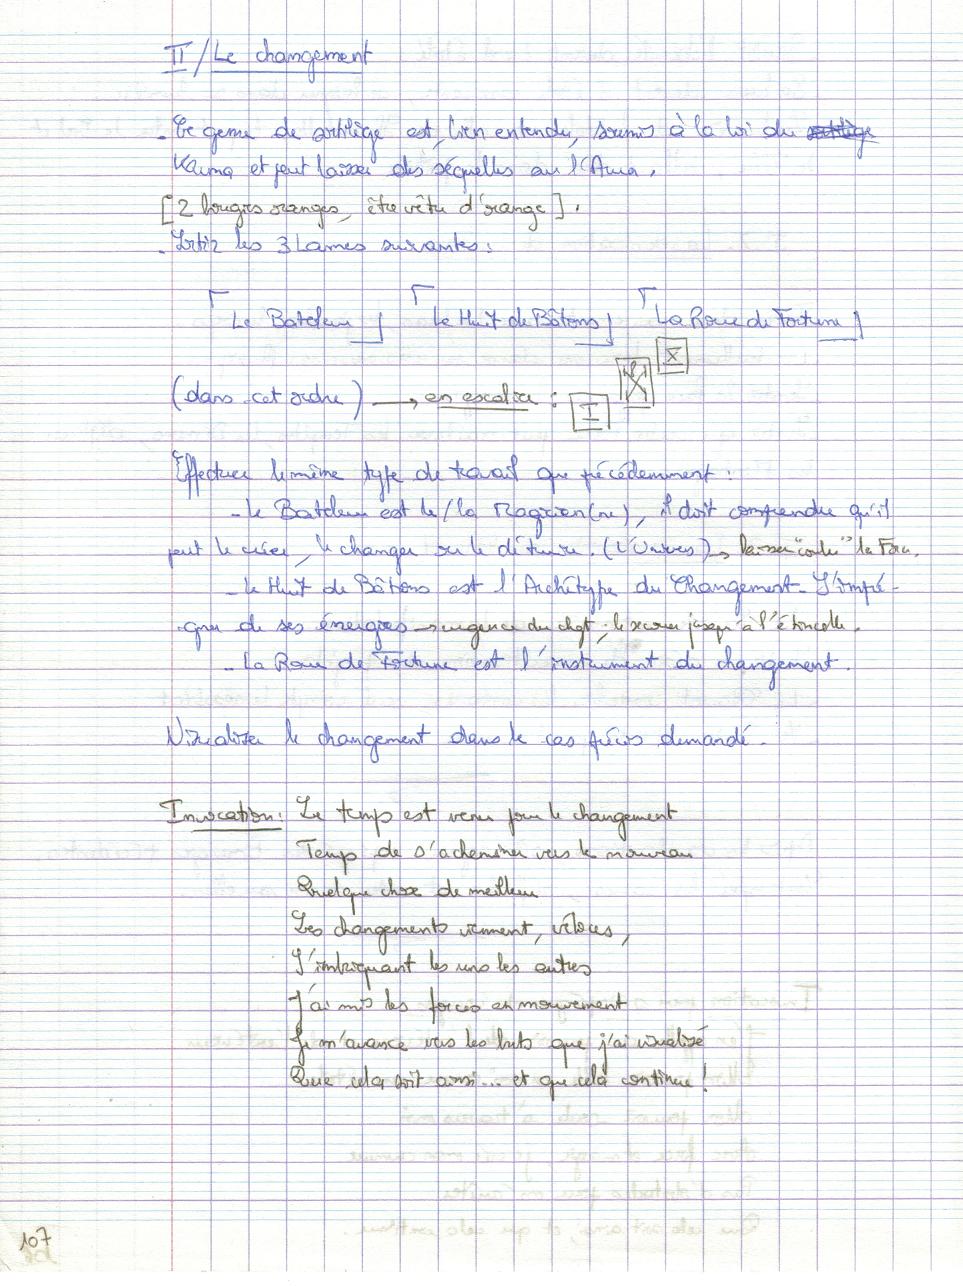 II/ Le changement
- Ce genre de sortilège est, bien entendu, soumis à la loi du sortilège
Karma et peut laisser des séquelles sur l'Aura.
[2 bougies oranges, être vêtu d'orange].
- Sortir les 3 Lames suivantes :
Le Bateleur Le Huit de Bâtons La Roue de Fortune
(dans cet ordre) → en escalier : I X
Effectuer le même type de travail que précédemment :
- Le Bateleur est le/la Magicien(ne), il doit comprendre qu'il
peut le créer, le changer ou le détruire. (L'Univers) → laisser "couler" la Force.
- Le Huit de Bâtons est l'Archétype du Changement. S'impré-
gner de ses énergies → urgence du chgt ; le secouer jusqu'à l'étincelle.
- La Roue de Fortune est l'instrument du changement.
Visualiser le changement dans le cas précis demandé.
Invocation : Le temps est venu pour le changement
Temps de s'acheminer vers le nouveau
Quelque chose de meilleur
Les changements viennent, véloces,
S'imbriquant les uns les autres
J'ai mis les forces en mouvement
Je m'avance vers les buts que j'ai visualisé
Que cela soit ainsi... et que celà continue !
107